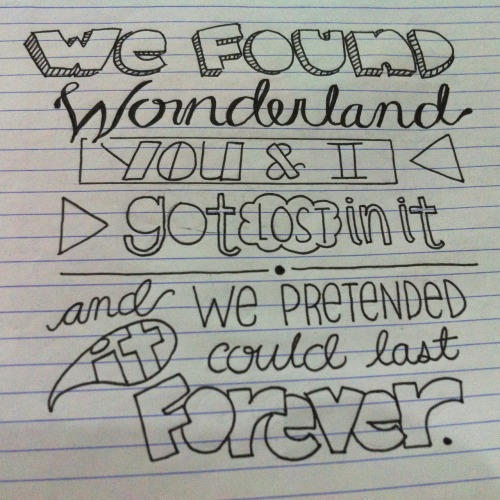 We Found
Wonderland
You & I
got LOST in it
and We PRETENDED
it could last
Forever.